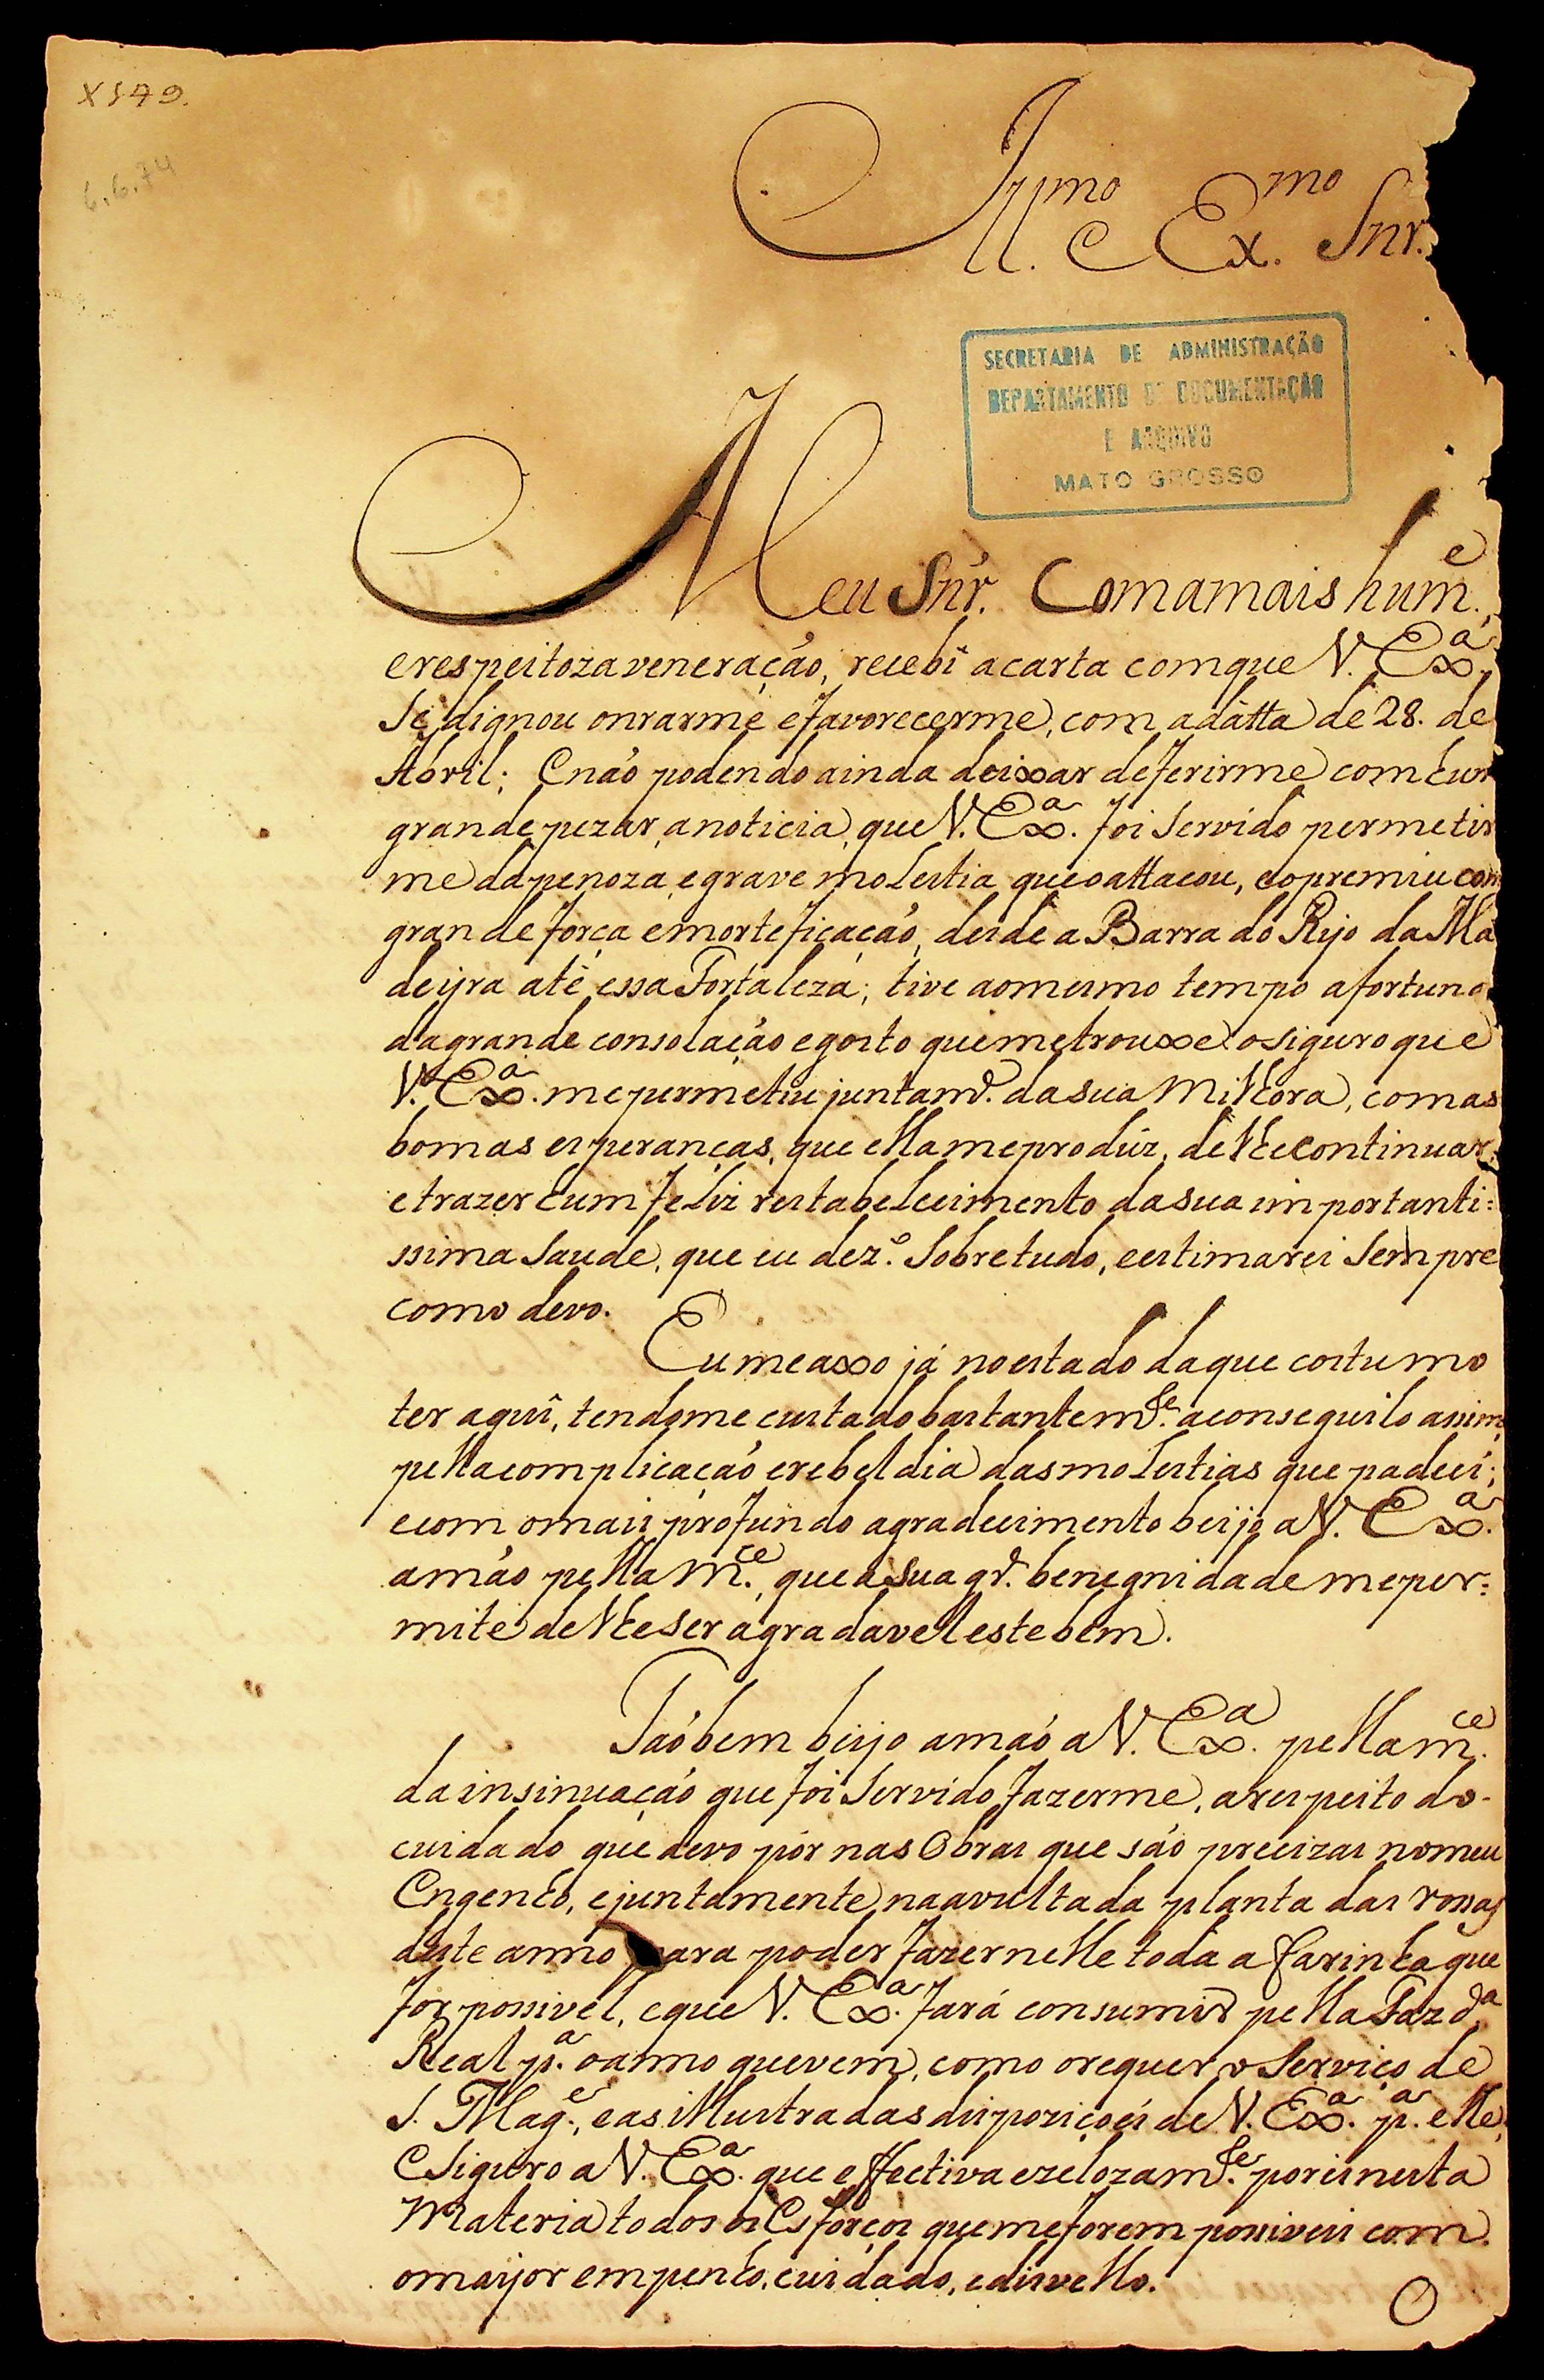 X 579.
6.6.74
Illmo e Exmo Snr.
SECRETARIA DE ADMINISTRAÇÃO
DEPARTAMENTO DE DOCUMENTAÇÃO
E ARQUIVO
MATO GROSSO
Meu Snr. Comamais hume.
erespeitozaveneração, recebi acarta comque V. Exa.
Se dignou onrarme efavorecerme, com adátta de 28. de
Abril; Enaõ podendo ainda deixar deferirme com hum
grande pezar, anoticia, que V. Exa. foi Servido permetir
me dapenoza, egrave molestia queoattacou, eopremiu com
grandeforça emorteficaçaõ, desde a Barra do Rijo da Ma
deijra até essa Fortaleza; tive aomesmo tempo afortuna
dagrande consolaçaõ egosto quemetrouxe osiguro que
V. Exa. mepermetiu juntamte. dasua Milhora, comas
bomas esperanças, que ellameprodús, delhecontinuar,
etrazer hum feliz restabelecimento dasua importanti:
ssima Saude, que eu dezo. Sobretudo, eestimarei Sempre
como devo.
Eumeaxo já noestado daque costumo
ter aqui, tendome custado bastantemte. aconseguilo assim
pellacomplicaçaõ erebeldia dasmolestias que padeci;
ecom omais profundo agradecimento beijo aV. Exa.
amaõ pella Mce., queasua gde. benegnidade meper:
mite delheser agradavel este bem.
Taõbem beijo amaõ aV. Exa. pella mce.
dainsinuaçaõ que foi Servido fazerme, arespeito do
cuidado que devo pôr nas Obras que saõ precizas nomeu
Engenho, ejuntamente naavultada planta das rossas
deste anno para poder fazernelle toda a farinha que
for possivel, eque V. Exa. fará consumir pella Fazda.
Real pa. oanno quevem, como orequer o Serviço de
S. Mage., eas illustradas dispoziçoés de V. Exa. pa. elle,
Esiguro aV. Exa. que effectiva ezelozamte. poreinesta
Materia todos os Esforços quemeforem possiveis com
omaijor empenho, cuidado, edisvello.
O